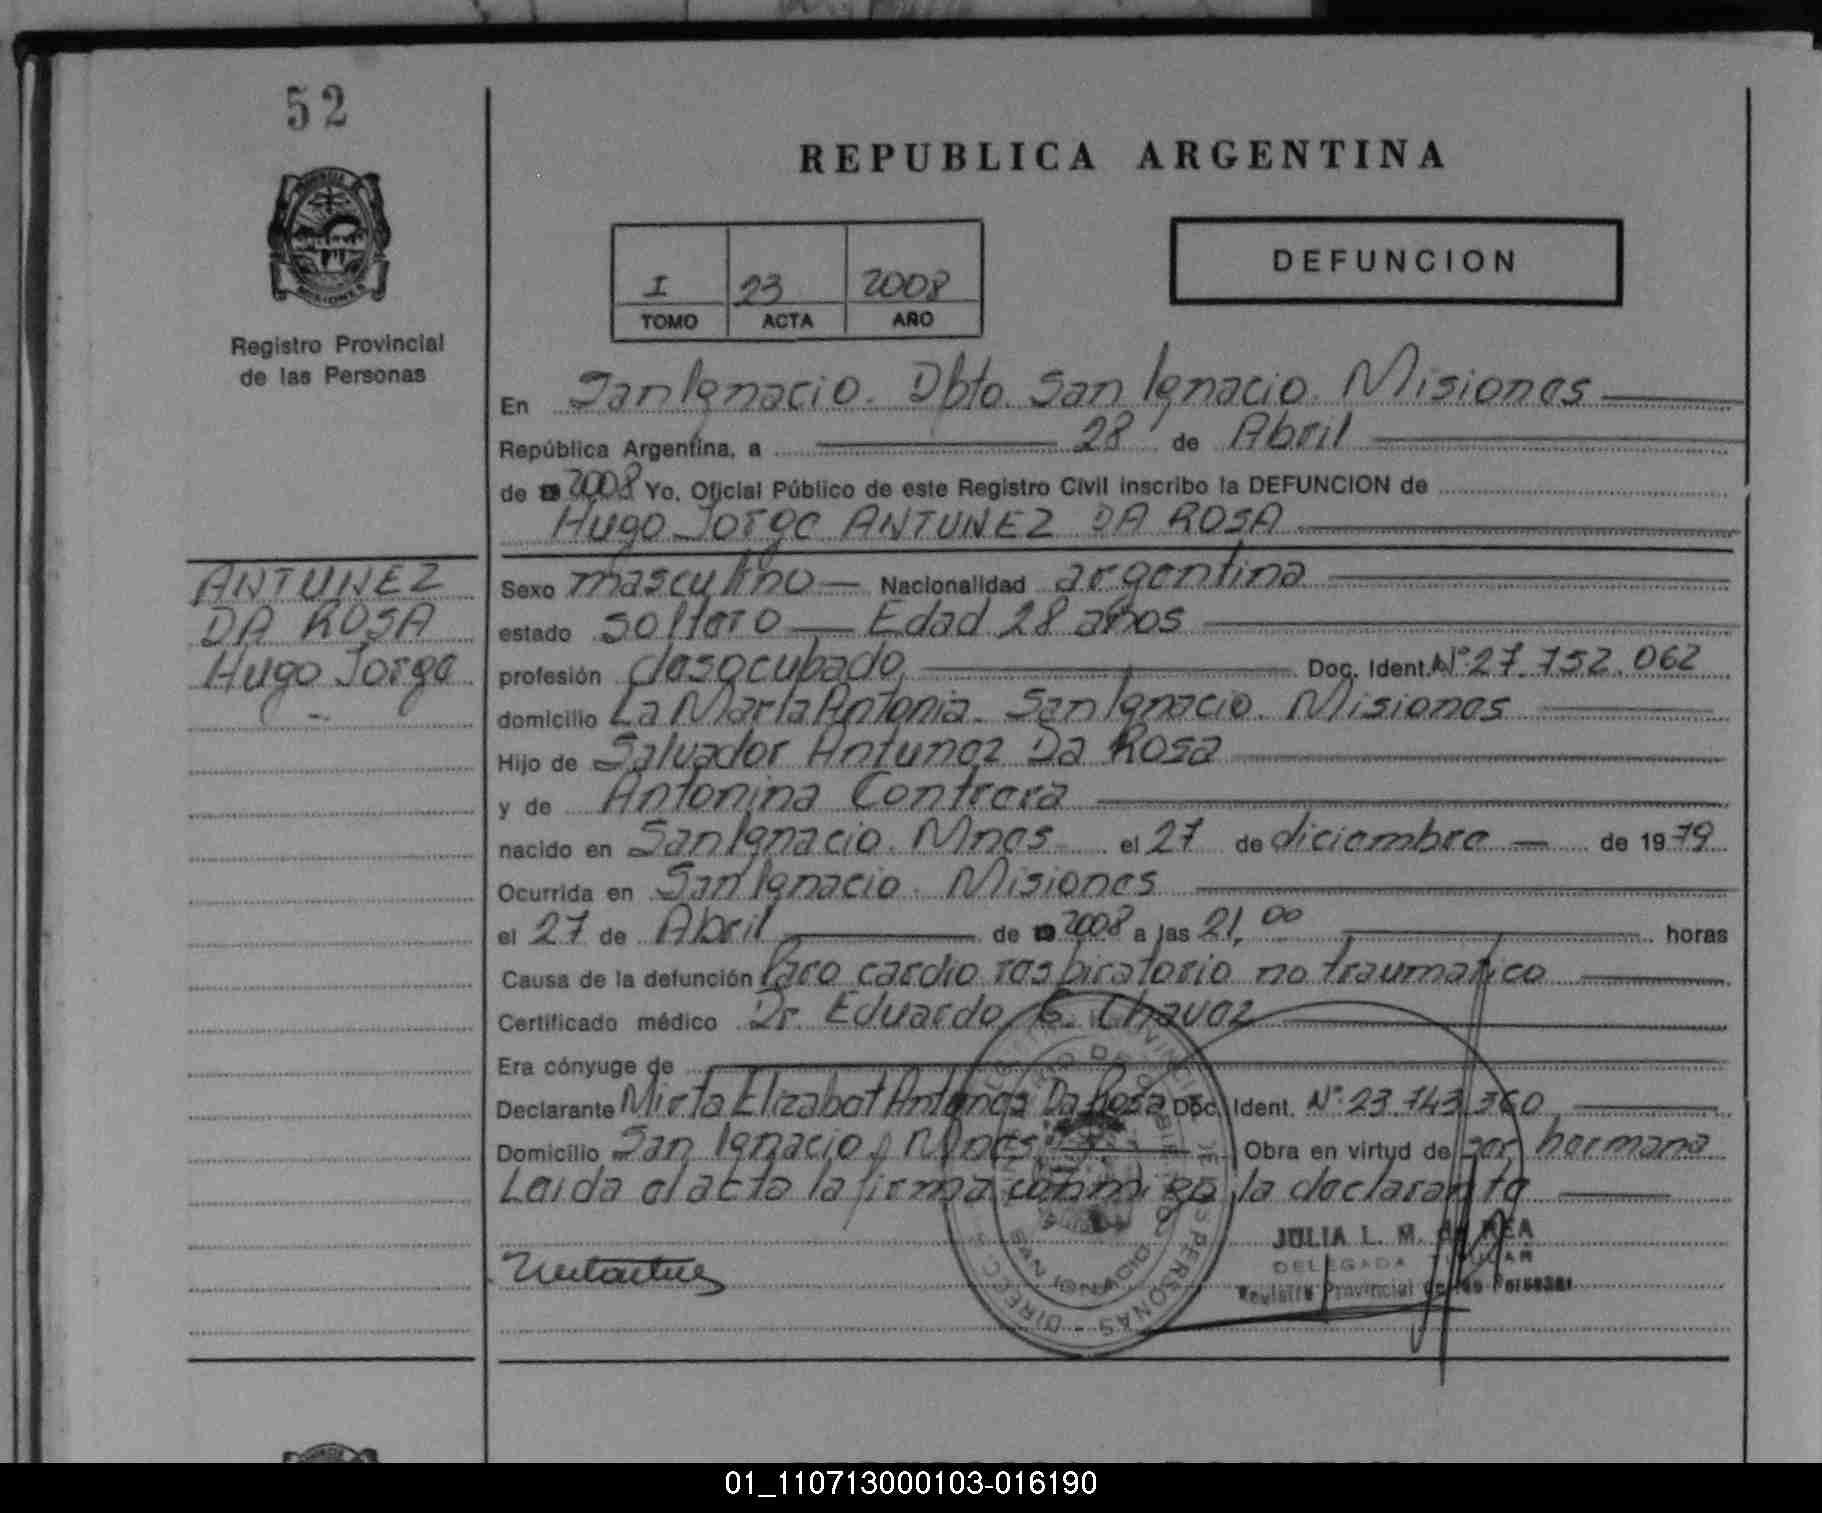 52
REPUBLICA ARGENTINA
I 23 2008
TOMO ACTA AÑO
DEFUNCION
MISIONES
Registro Provincial
de las Personas
En San Ignacio. Dpto. San Ignacio. Misiones
República Argentina, a 28 de Abril
de 2008 Yo, Oficial Público de este Registro Civil inscribo la DEFUNCION de
Hugo Jorge ANTUNEZ DA ROSA
ANTUNEZ
DA ROSA
Hugo Jorge
Sexo masculino Nacionalidad argentina
estado soltero Edad 28 años
profesión desocupado Doc. Ident. Nº 27.752.062
domicilio La Marta Antonia. San Ignacio. Misiones
Hijo de Salvador Antunez Da Rosa
y de Antonina Contrera
nacido en San Ignacio. Mnes el 27 de diciembre de 1979
Ocurrida en San Ignacio. Misiones
el 27 de Abril de 2008 a las 21,00 horas
Causa de la defunción Paro cardio respiratorio no traumatico
Certificado médico Dr. Eduardo G. Chavez
Era cónyuge de
Declarante Mirta Elizabet Antunez Da Rosa Doc. Ident. Nº 23.743.360
Domicilio San Ignacio, Mnes Obra en virtud de ser hermana
Leida el acta la firma conmigo la declarante
JULIA L. M. de REA
DELEGADA TITULAR
Registro Provincial de las Personas
SAN IGNACIO
01_110713000103-016190